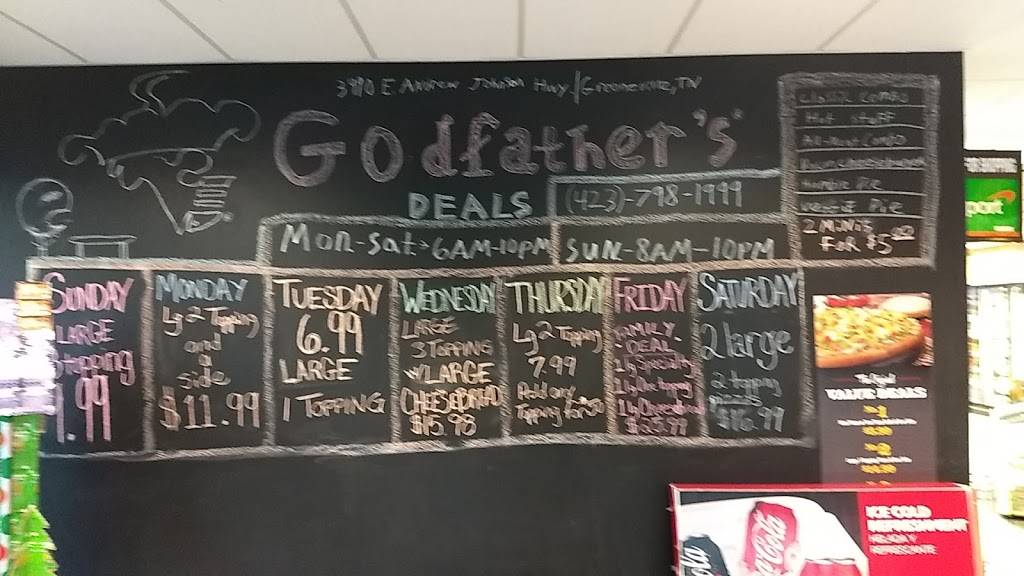 3980 E Andrew Johnson Hwy/Greeneville, TN
Godfather's
DEALS
(423)-798-1999
Mon-Sat-6AM-10PM
SUN-8AM-10PM
Classic Combo
Hot Stuff
All-Meat Combo
Humble Pie
Veggie Pie
2 Minis
FOR $5.00
SUNDAY
LARGE
Topping
.99
MONDAY
Lg 2 Topping
and
a
side
$11.99
TUESDAY
6.99
LARGE
1 TOPPING
WEDNESDAY
LARGE
3 TOPPING
w/LARGE
CHEESEBREAD
$15.98
THURSDAY
Lg 2 Topping
7.99
Add any
Topping for
FRIDAY
FAMILY
DEAL
1 Lg Specialty
1 Lg One topping
1 Lg
SATURDAY
2 large
2 topping
pizzas
$16.99
VALUE DEALS
1
2
port
ICE COLD
REFRESHMENT
HELADA Y
REFRESCANTE
Coca-Cola
ola